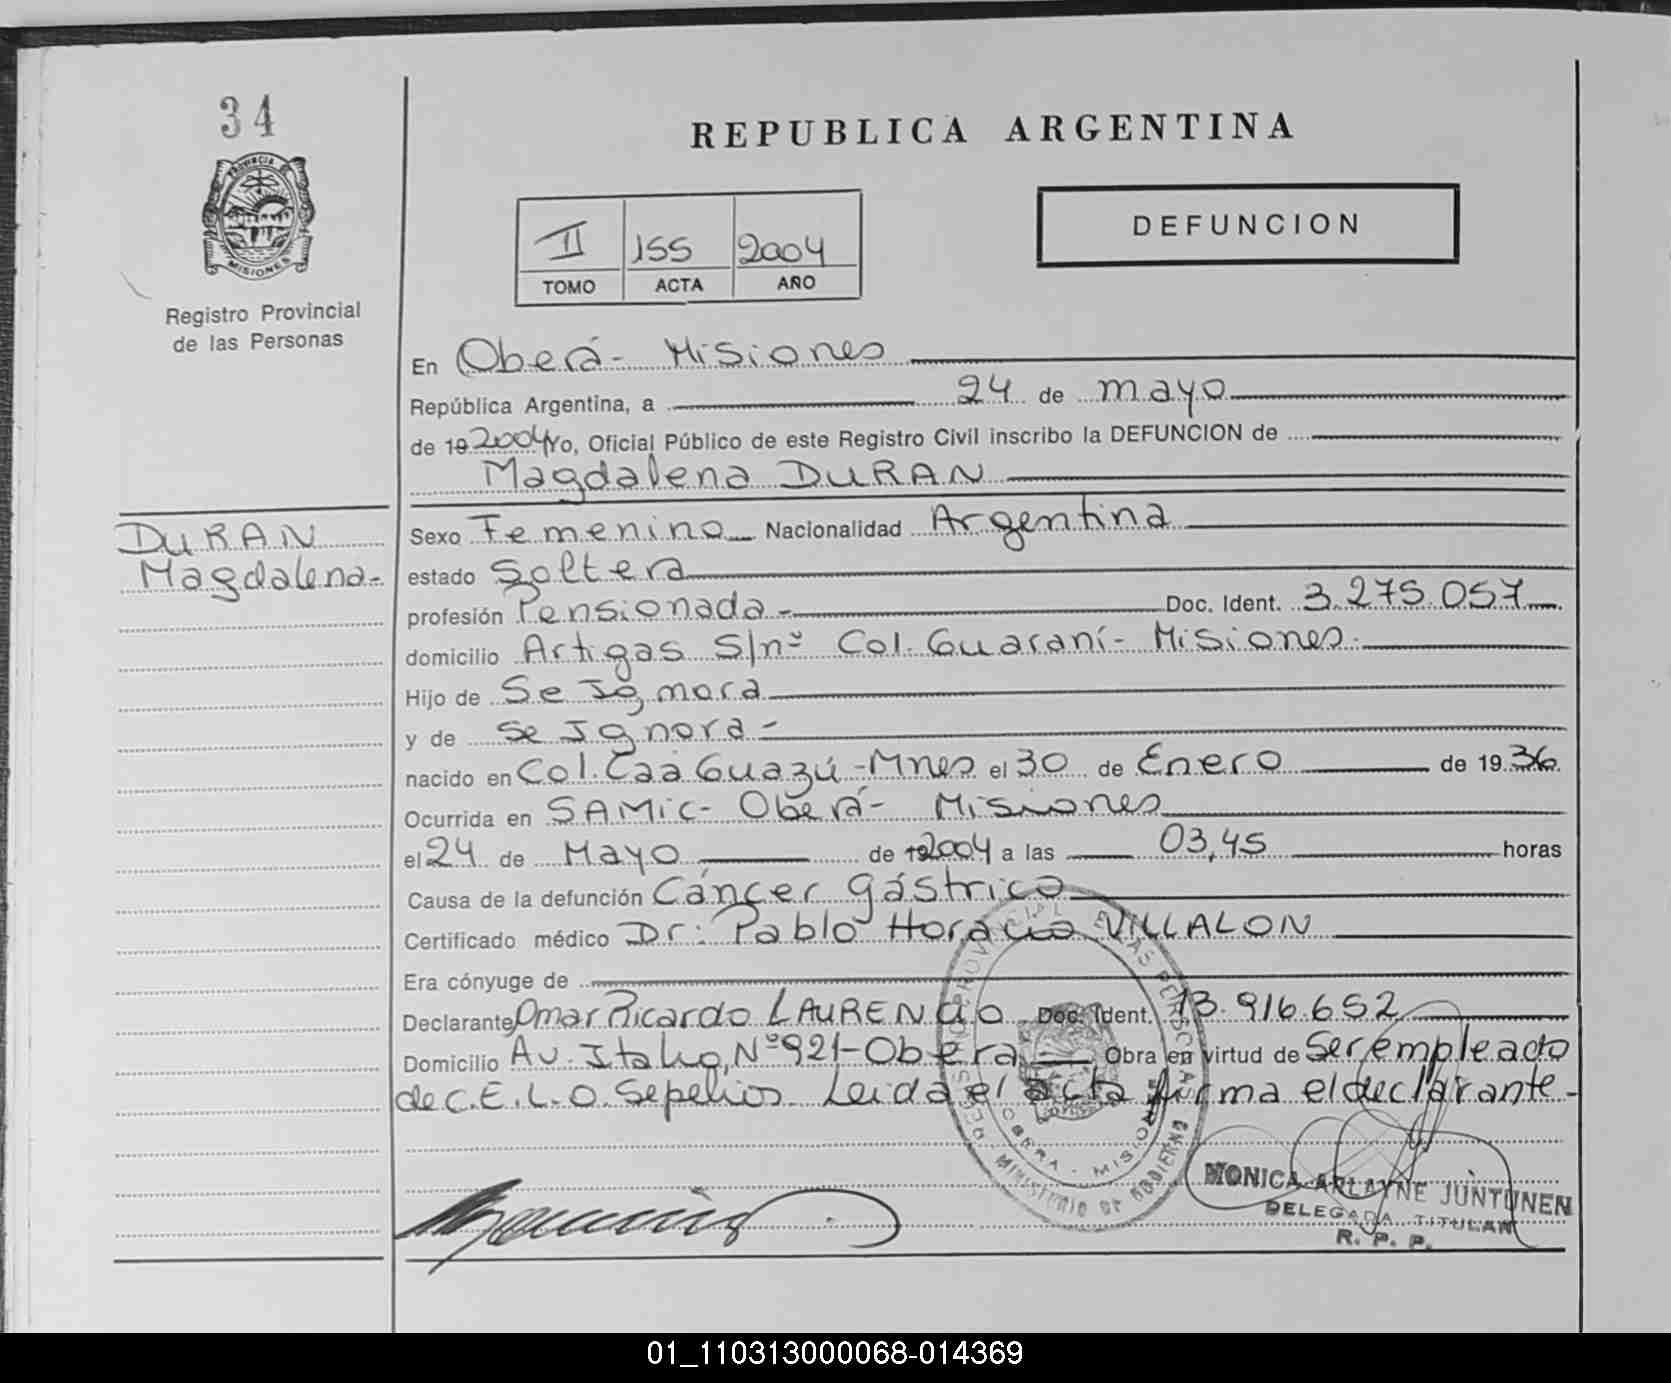 34
PROVINCIA
MISIONES
Registro Provincial
de las Personas
REPUBLICA ARGENTINA
DEFUNCION
II 155 2004
TOMO ACTA AÑO
En Oberá - Misiones
República Argentina, a 24 de mayo
de 19 2004 Yo, Oficial Público de este Registro Civil inscribo la DEFUNCION de
Magdalena DURAN
DURAN
Magdalena-
Sexo Femenino Nacionalidad Argentina
estado Soltera
profesión Pensionada - Doc. Ident. 3.275.057
domicilio Artigas S/nº Col. Guaraní - Misiones.
Hijo de Se Ignora
y de Se Ignora -
nacido en Col. Caá Guazú - Mnes el 30 de Enero de 1936
Ocurrida en SAMIC - Oberá - Misiones
el 24 de Mayo de 19 2004 a las 03,45 horas
Causa de la defunción Cáncer gástrico
Certificado médico Dr: Pablo Horacio VILLALON
Era cónyuge de
Declarante Omar Ricardo LAURENCIO Doc. Ident. 13.916.652
Domicilio Av. Italia, Nº 921 - Oberá Obra en virtud de Ser empleado
de C.E.L.O. Sepelios. Leida el acta firma el declarante -
MINISTERIO DE GOBIERNO
OBERA - MISIONES
MONICA ARLAYNE JUNTUNEN
DELEGADA TITULAR
R. P. P.
01_110313000068-014369